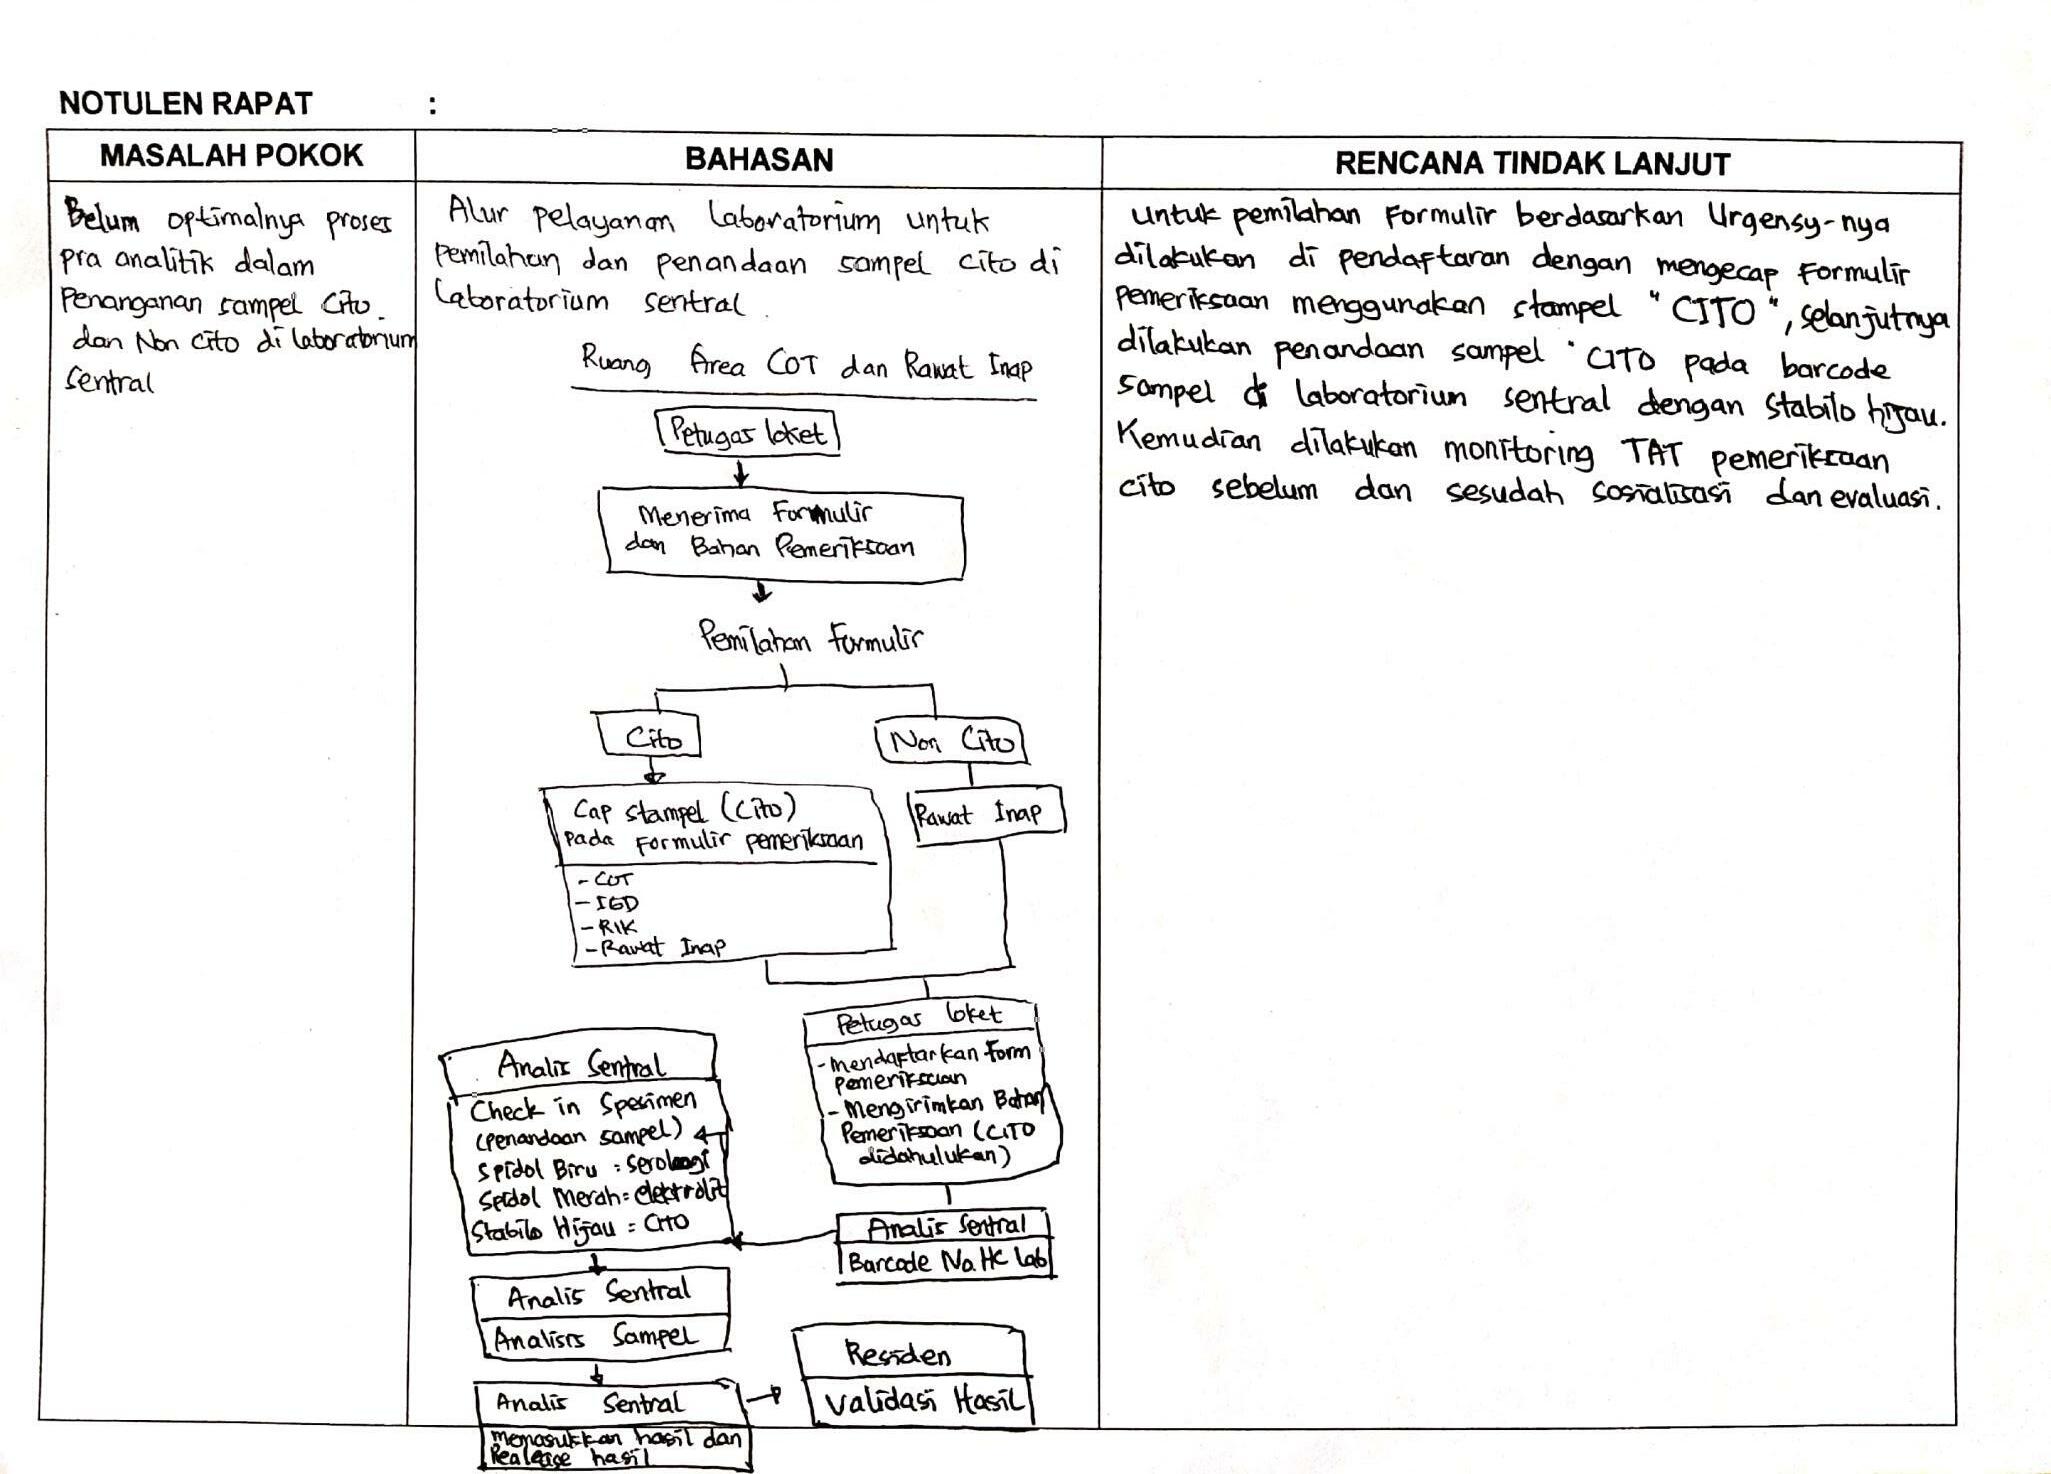 NOTULEN RAPAT :
MASALAH POKOK
BAHASAN
RENCANA TINDAK LANJUT
Belum optimalnya proses
pra analitik dalam
Penanganan sampel Cito
dan Non Cito di laboratorium
Sentral
Alur pelayanan laboratorium untuk
pemilahan dan penandaan sampel cito di
Laboratorium sentral.
Ruang Area COT dan Rawat Inap
Petugas loket
Menerima Formulir
dan Bahan Pemeriksaan
Pemilahan Formulir
Cito
Non Cito
Cap stampel (Cito)
pada Formulir pemeriksaan
- COT
- IGD
- RIK
- Rawat Inap
Rawat Inap
Petugas loket
- Mendaftarkan Form
pemeriksaan
- Mengirimkan Bahan
Pemeriksaan (CITO
didahulukan)
Analis Sentral
Barcode No. HC Lab
Analis Sentral
Check in Spesimen
(penandaan sampel)
Spidol Biru : Serologi
Spidol Merah = elektrolit
Stabilo Hijau = CITO
Analis Sentral
Analisis Sampel
Analis Sentral
memasukkan hasil dan
Realease hasil
Residen
Validasi Hasil
Untuk pemilahan Formulir berdasarkan Urgensy-nya
dilakukan di pendaftaran dengan mengecap Formulir
pemeriksaan menggunakan stampel "CITO", selanjutnya
dilakukan penandaan sampel CITO pada barcode
sampel di laboratorium sentral dengan Stabilo hijau.
Kemudian dilakukan monitoring TAT pemeriksaan
cito sebelum dan sesudah sosialisasi dan evaluasi.